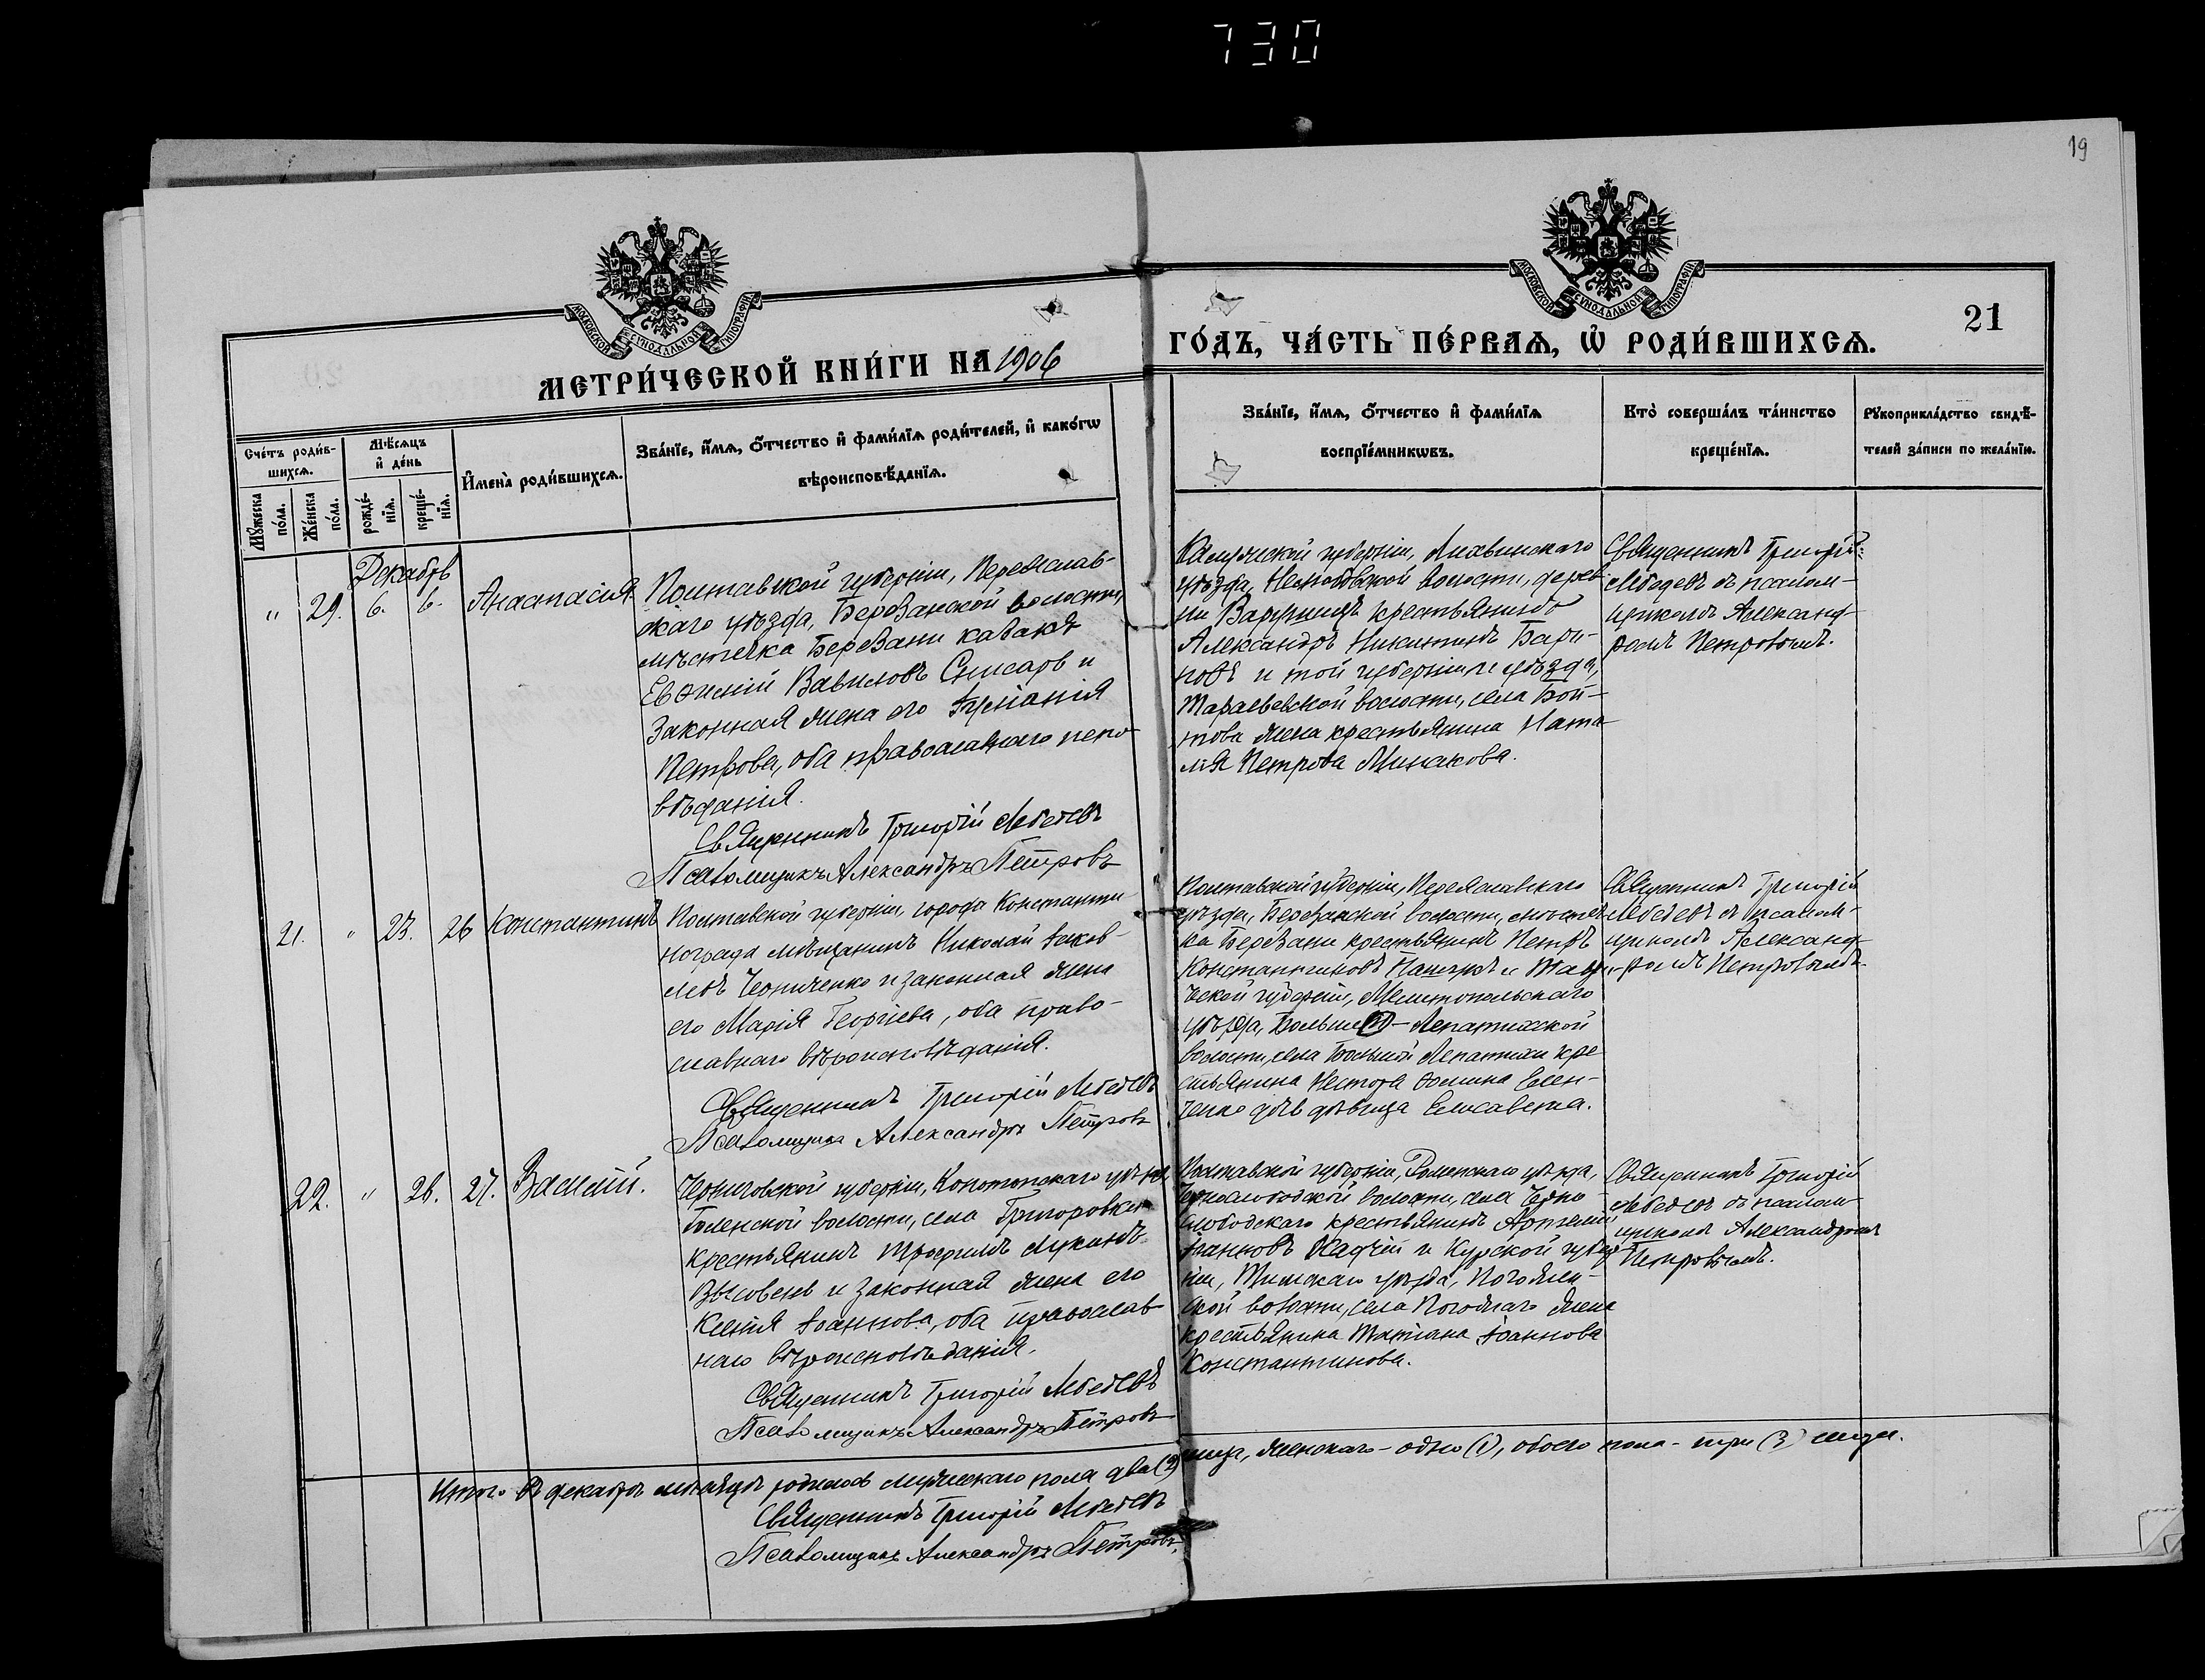 730
19
МОСКОВСКОЙ СѴНОДАЛЬНОЙ ТИПОГРАФІИ
МОСКОВСКОЙ СѴНОДАЛЬНОЙ ТИПОГРАФІИ
21
МЕТРИ́ЧЕСКОЙ КНИ́ГИ НА 1906
ГО́ДЪ, ЧА́СТЬ ПЕ́РВАѦ, Ѡ҆ РОДИ́ВШИХСѦ.
Сче́тъ роди́в-
шихсѧ.
Мꙋ́жеска по́ла.
Же́нска по́ла.
Мѣ́сѧцъ
и҆ де́нь
рожде́-
нїѧ.
креще́-
нїѧ.
И҆мена̀ роди́вшихсѧ.
Зва́нїе, и҆́мѧ, ѻ҆́тчество и҆ фами́лїѧ роди́телей, и҆ како́гѡ
вѣроисповѣ́данїѧ.
Зва́нїе, и҆́мѧ, ѻ҆́тчество и҆ фами́лїѧ
воспрїе́мникѡвъ.
Кто̀ соверша́лъ та́инство
креще́нїѧ.
Рꙋкоприкла́дство свидѣ́-
телей за́писи по жела́нїю.
Декабрь
" 29. 6. 6. Анастасія
Полтавской губерніи, Переяслав-
скаго уѣзда, Березанской волости,
мѣстечка Березани казакъ
Евѳимій Вавиловъ Слисарь и
законная жена его Іуліанія
Петрова, оба православнаго испо-
вѣданія.
Священникъ Григорій Лебедевъ
Псаломщикъ Александръ Петровъ
Калужской губерніи, Лихвинскаго
уѣзда, волости, дерев-
ни крестьянинъ
Александръ Никитинъ Бари-
новъ и той губерніи и уѣзда,
волости, села Бой-
това жена крестьянина Ната-
лія Петрова Минакова.
Священникъ Григорій
Лебедевъ съ псалом-
щикомъ Александ-
ромъ Петровымъ.
21. " 23. 26 Константинъ
Полтавской губерніи, города Константи-
нограда мѣщанинъ Николай Іаков-
левъ Черниченко и законная жена
его Марія Георгіева, оба право-
славнаго вѣроисповѣданія.
Священникъ Григорій Лебедевъ
Псаломщикъ Александръ Петровъ
Полтавской губерніи, Переяславскаго
уѣзда, Березанской волости, мѣстеч-
ка Березани крестьянинъ Петръ
Константиновъ и Таври-
ческой губерніи, Мелитопольскаго
уѣзда, Больше-Лепатихской
волости, села Большой Лепатихи кре-
стьянина Нестора Ѳомина Елен-
ченко дѣвица Елисавета.
Священникъ Григорій
Лебедевъ съ псалом-
щикомъ Александ-
ромъ Петровымъ
22. " 26. 27. Василій.
Черниговской губерніи, Конотопскаго уѣзда,
волости, села Григоровки
крестьянинъ Трофимъ Лукинъ
Высовень и законная жена его
Ксенія Іоаннова, оба православ-
наго вѣроисповѣданія.
Священникъ Григорій Лебедевъ
Псаломщикъ Александръ Петровъ
Полтавской губерніи, Роменскаго уѣзда,
волости, села
слободскаго крестьянинъ Артемій
Іоанновъ и Курской губер-
ніи, Тимскаго уѣзда, Погожен-
ской волости, села Погожаго жена
крестьянина Татіана Іоаннова
Константинова.
Священникъ Григорій
Лебедевъ съ псалом-
щикомъ Александромъ
Петровымъ.
Итого въ декабрѣ мѣсяцѣ родилось мужескаго пола два (2) лица, женскаго - одно (1), обоего пола - три (3) лица.
Священникъ Григорій Лебедевъ
Псаломщикъ Александръ Петровъ.